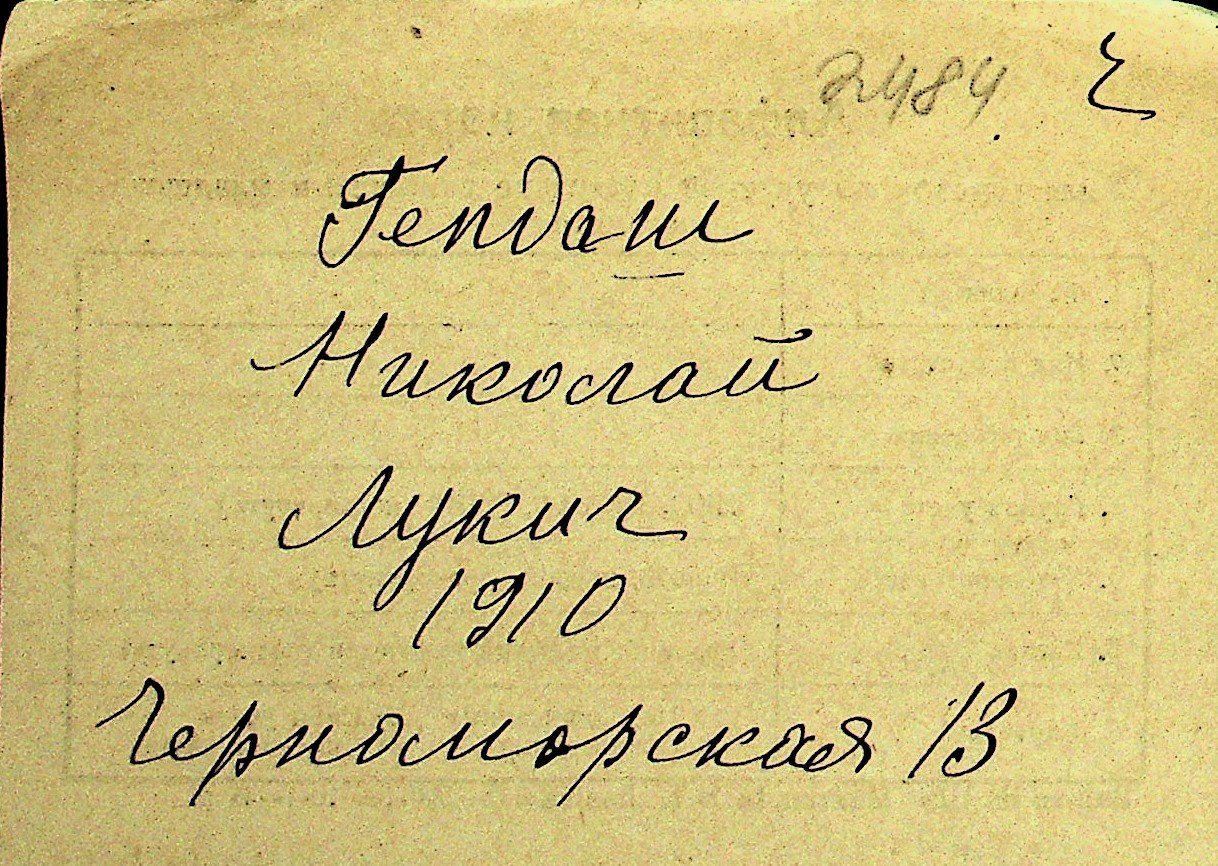 2484 ч
Гепдаш
Николай
Лукич
1910
Черноморская 13